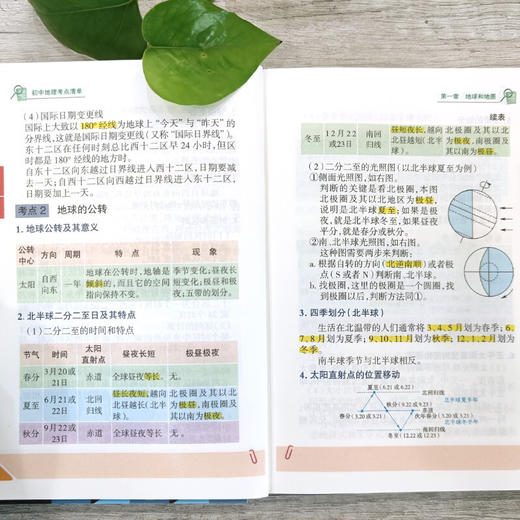 初中地理考点清单
(4)国际日期变更线
国际上大致以180°经线为地球上“今天”与“昨天”的
分界线,这就是国际日期变更线(又称“国际日界线”)。
东十二区在任何时刻总比西十二区早24小时,但区
时都是180°经线的地方时。
自东十二区向东越过日界线进入西十二区,日期要减
去一天;自西十二区向西越过日界线入东十二区,
日期要加上一天。
考点2 地球的公转
1. 地球公转及其意义
公转中心 方向 周期 特点 现象
太阳 自西向东 一年 地球在公转时,地轴是倾斜的,而且它的空间指向保持不变。 季节变化;昼夜长短变化;极昼和极夜;五带的划分。
2. 北半球二分二至日及其特点
(1)二分二至的时间和特点
节气 时间 太阳直射点 昼夜长短 极昼极夜
春分 3月20或21日 赤道 全球昼夜等长。 无。
夏至 6月21或22日 北回归线 昼长夜短,越向北昼越长(北半球) 北极圈及其以北为极昼,南极圈及其以南为极夜。
秋分 9月22或23日 赤道 全球昼夜等长 无。
第一章 地球和地图
续表
冬至 12月22或23日 南回归线 昼短夜长,越向北昼越短(北半球)。 北极圈及其以北为极夜,南极圈及其以南为极昼。
(2)二分二至的光照图(以北半球夏至为例)
①侧面光照图,如右图。
判断的关键是看北极圈,本图
北极圈及其以北地区为极昼,
说明是北半球夏至;如果是极
夜,就是北半球冬至,如果昼夜
平分,就是春分或秋分。
②南、北半球光照图,如右图。
这种图需要两步来判断:
a. 根据自转的方向(北逆南顺)或者极
点(S或者N)判断南、北半球。
b. 找极圈,这里的极圈是一个圆圈,找
到极圈以后,判断方法同①。
3. 四季划分(北半球)
生活在北温带的人们通常将3、4、5月划为春季;6、
7、8月划为夏季;9、10、11月划为秋季;12、1、2月为
冬季。
南半球季节与北半球相反。
4. 太阳直射点的位置移动
夏至(6.21或6.22)
北回归线
北半球夏半年
秋分(9.22或9.23)
赤道
春分(3.20或3.21)
次年春分(3.20或3.21)
北半球冬半年
南回归线
冬至(12.22或12.23)